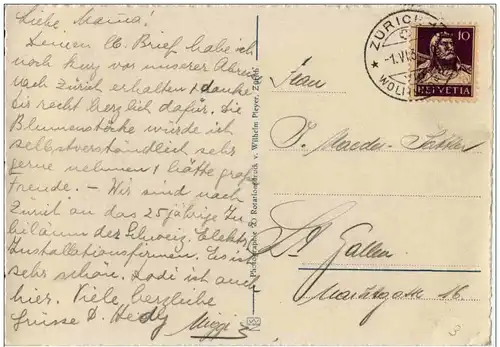 Liebe Mama!
Deinen lb. Brief habe ich
noch kurz vor unserer Abreise
nach Zürich erhalten & danke
Dir recht herzlich dafür. Die
Blumenstöcke würde ich
selbstverständlich sehr
gerne nehmen & hätte grosse
Freude. – Wir sind nach
Zürich an das 25 jährige Ju-
biläum der Schweiz. Elektr.
Installationsfirmen. Es ist
sehr schön. Dodi ist auch
hier. Viele herzliche
Grüsse D. Hedy
Photographie & Rotationsdruck v. Wilhelm Pleyer, Zürich
ZÜRICH
-1.VI.
WOLL
10
HELVETIA
Frau
Maeder
St. Gallen
Marktgasse 16
3